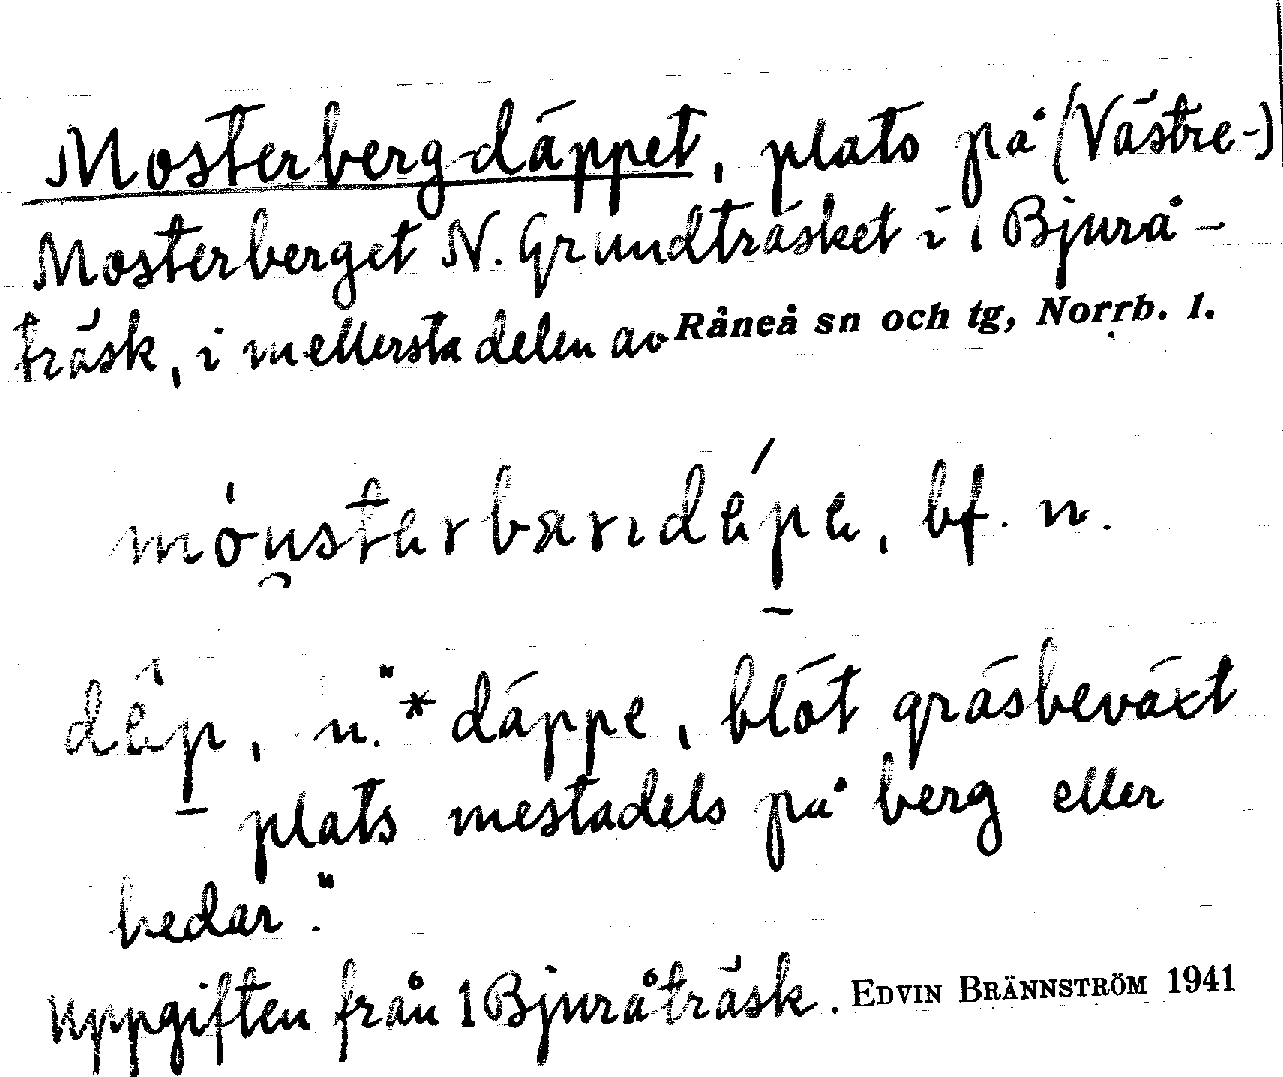 Mosterberg-däppet, plats på (Västre-)
Mosterberget N. Grundträsket i 1 Bjurå-
träsk, i mellersta delen av Råneå sn och tg, Norrb. l.
bf. n.
n. "*däppe, blöt gräsbeväxt
plats mestadels på berg eller
hedar."
Uppgiften från 1 Bjuråträsk. EDVIN BRÄNNSTRÖM 1941